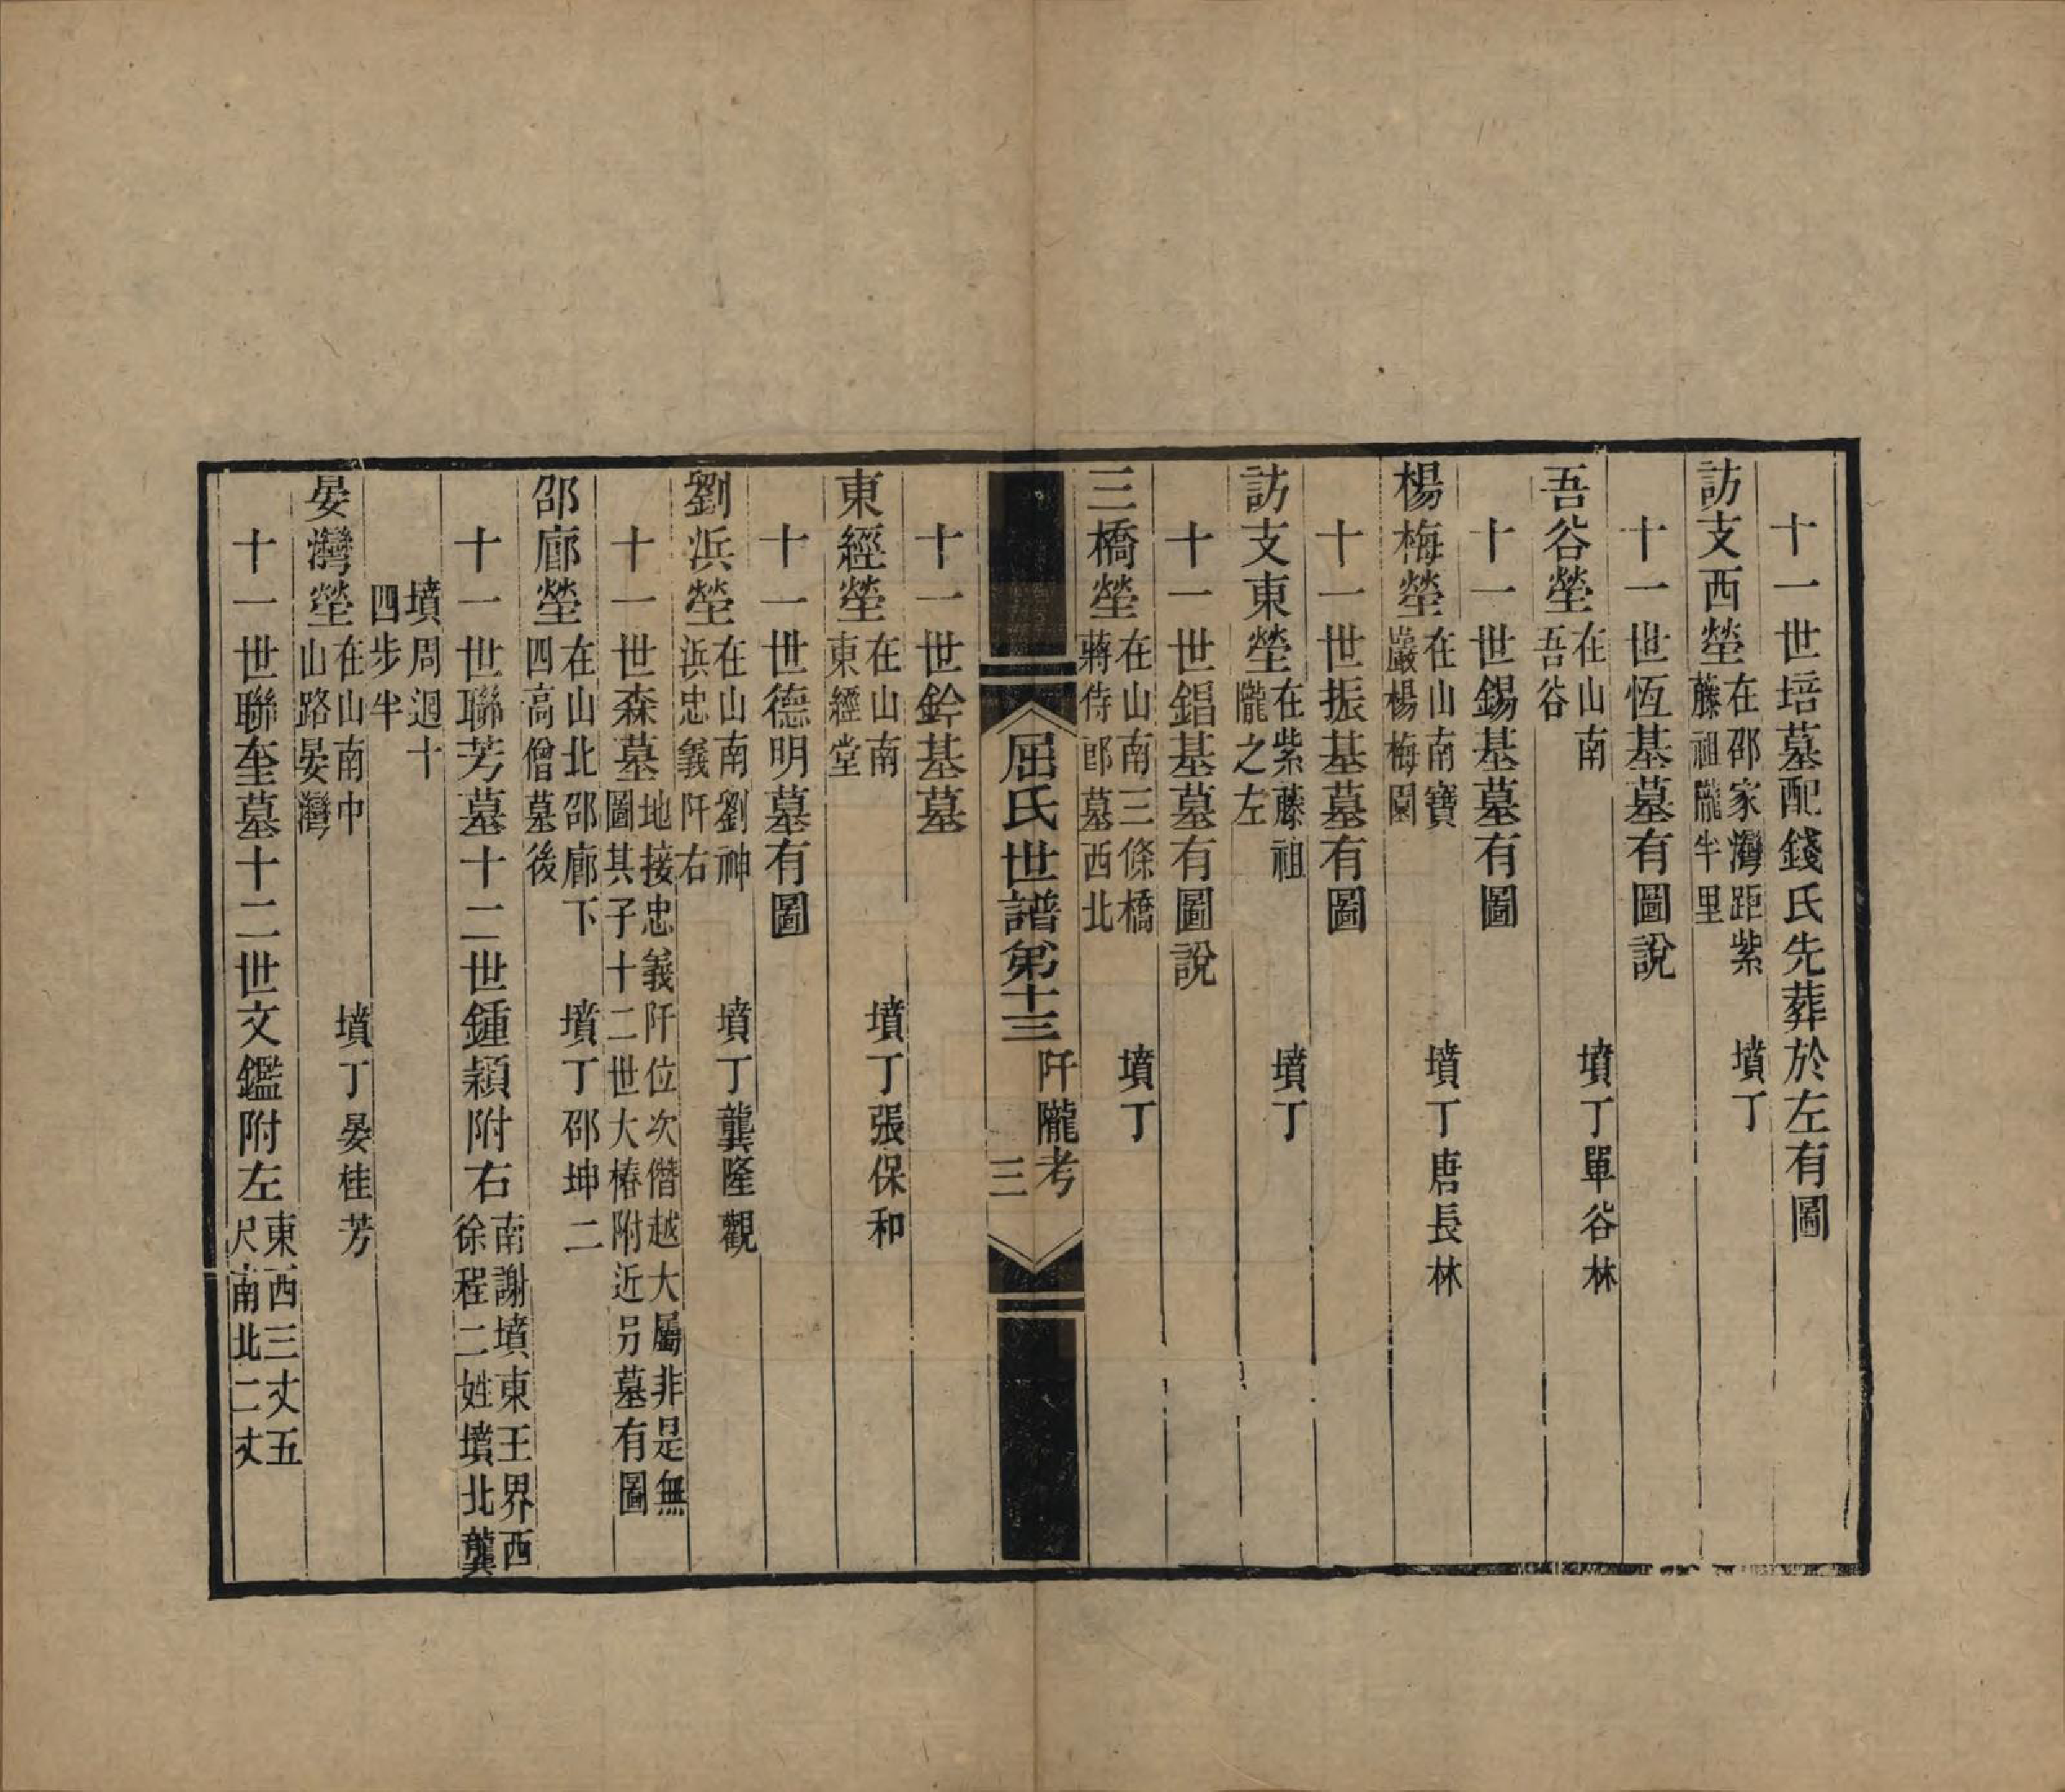 十一世培墓配錢氏先葬於左有圖
訪支西塋在邵家灣距紫藤祖隴半里　墳丁
十一世恆基墓有圖說
吾谷塋在山南吾谷　墳丁單谷林
十一世錫基墓有圖
楊梅塋在山南寶巖楊梅園　墳丁唐長林
十一世振基墓有圖
訪支東塋在紫藤祖隴之左　墳丁
十一世錩基墓有圖說
三橋塋在山南三條橋蔣侍郎墓西北　墳丁
屈氏世譜第十三　阡隴考　三
十一世鈐基墓
東經塋在山南東經堂　墳丁張保和
十一世德明墓有圖
劉浜塋在山南劉神浜忠義阡右　墳丁龔隆觀
十一世森墓地接忠義阡位次僭越大屬非是無圖其子十二世大椿附近另墓有圖
邵廊塋在山北邵廊下四高僧墓後　墳丁邵坤二
十一世聯芳墓十二世鍾穎附右南謝墳東王界西徐程二姓墳北龔
墳周迴十四步半
晏灣塋在山南中山路晏灣　墳丁晏桂芳
十一世聯奎墓十二世文鑑附左東西三丈五尺南北二丈